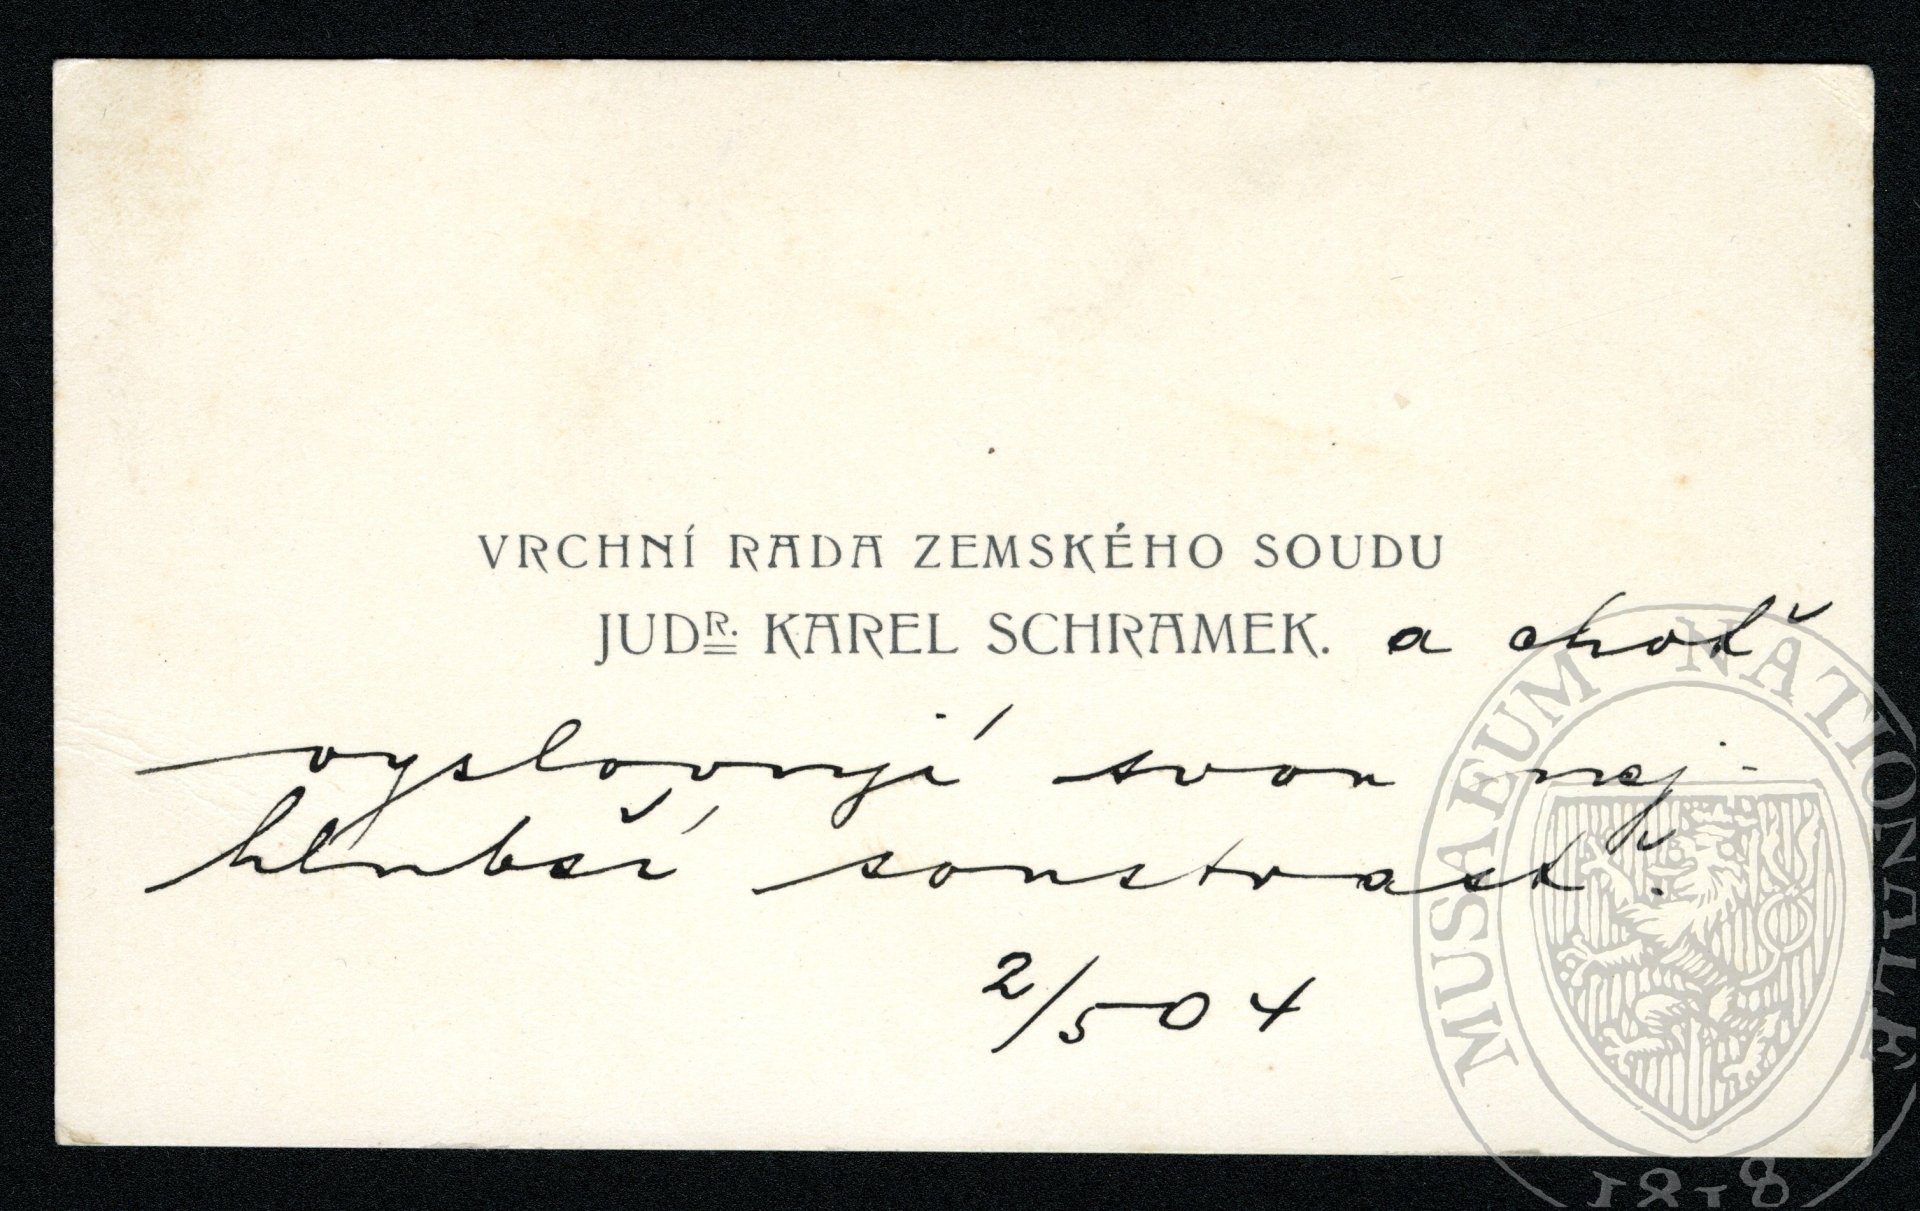 VRCHNÍ RADA ZEMSKÉHO SOUDU
JUDR. KAREL SCHRAMEK. a choť
vyslovují svou nej-
hlubší soustrast.
2/5 04
MUSAEUM NATIONALE
1818